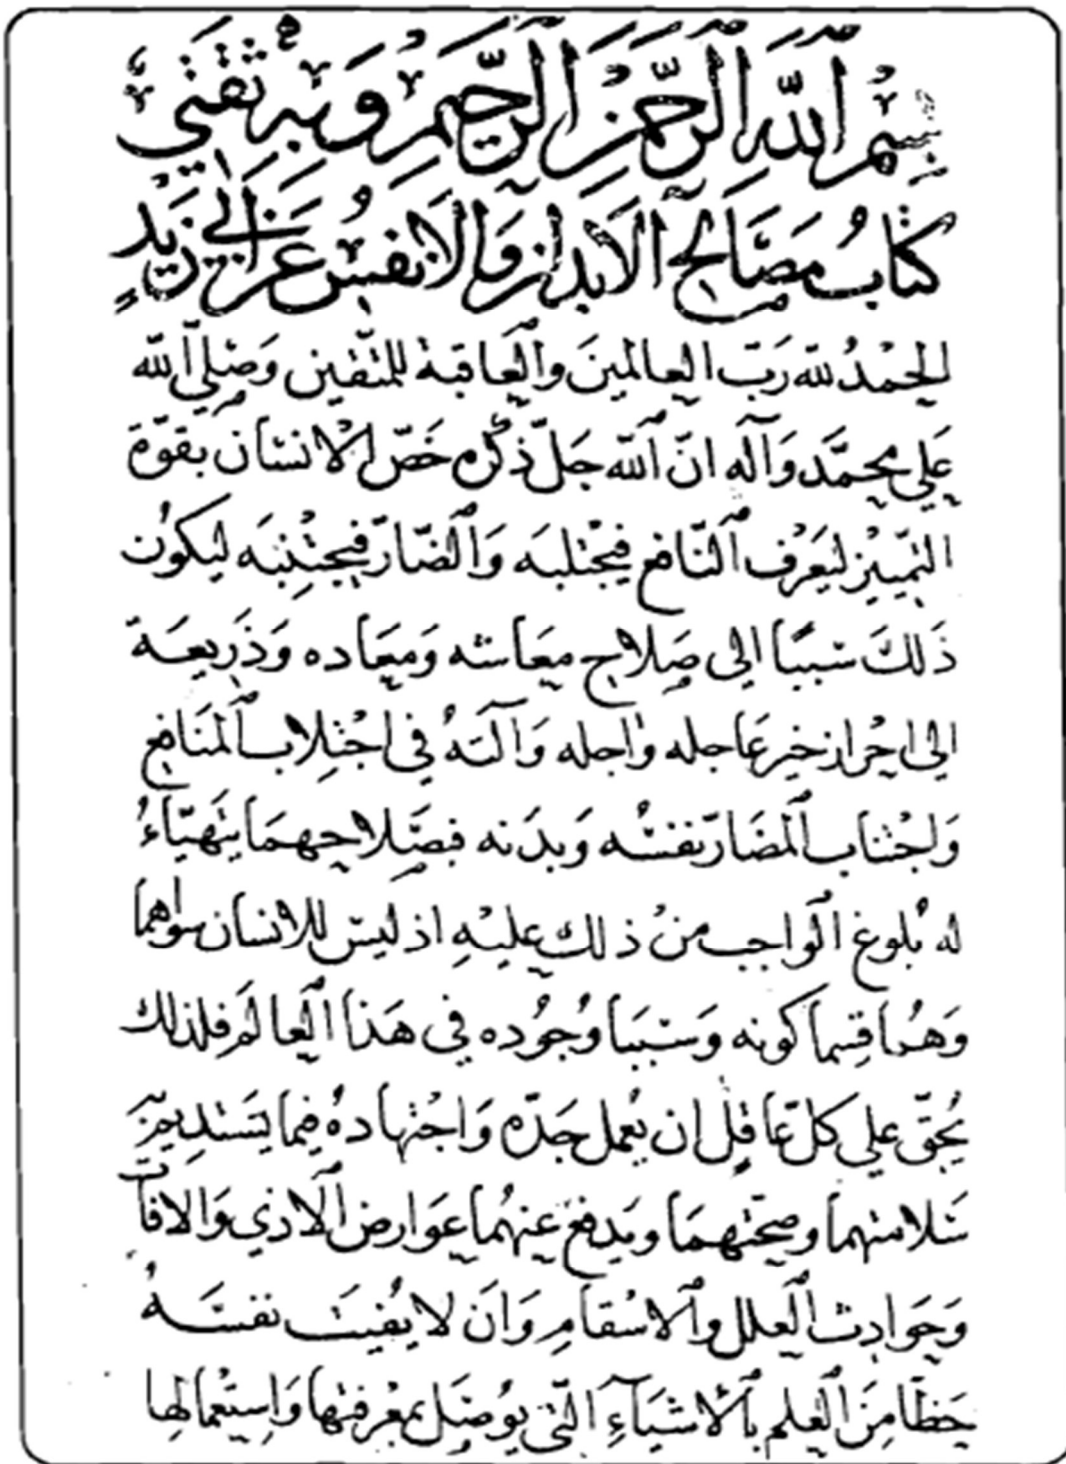 بِسْمِ ٱللَّهِ ٱلرَّحْمَنِ ٱلرَّحِيمِ وَبِهِ ثِقَتِي
كتابُ مَصَالِحِ ٱلأَبْدَانِ وَالأَنفُسِ عَنْ أَبِي زَيْدٍ
الحمْدُ لله رَبّ العالمينَ والعَاقبة للمتّقين وَصَلى ٱلله
عَلى محمَّد وَآله انّ ٱلله جَلّ ذكْره خَصّ الانسَان بقوّة
التّمييْز ليَعْرف ٱلنّافع فيجْتلبَه وَٱلضّارّ فيجْتنِبَه ليكوُن
ذَلكَ سَببًا الى صَلاح معَاشه وَمعَاده وَذَريعَة
الى احْراز خير عَاجله واجله وَآلتهُ فى اجْتلاب ٱلمنَافع
وَاجْتناب ٱلمضَارّ نفسُه وَبدَنه فبصَلاحهمَا يتَهيّاءُ
له بُلوغ ٱلواجب منْ ذلك عليْهِ اذ ليسَ للانسان سواهما
وَهُما قِسما كونه وَسَببَا وُجُوده فى هَذا ٱلعالَم فلذلك
يحُقّ على كلّ عَاقلٍ ان يُعمل جَدّه وَاجْتهادهُ فيما يَسْتديمُ بِهِ
سَلامتهما وصحّتهمَا ويَدفعَ عنهُما عَوارض ٱلاذى وَالافات
وَحَوَادث ٱلعلل وٱلاسْقامِ وَاَن لا يُفيتَ نفسَهُ
حَظّا مِنَ ٱلعلم بٱلاشيَآءِ ٱلتى يوُصَل بمعْرفتها وَاستعْمالها